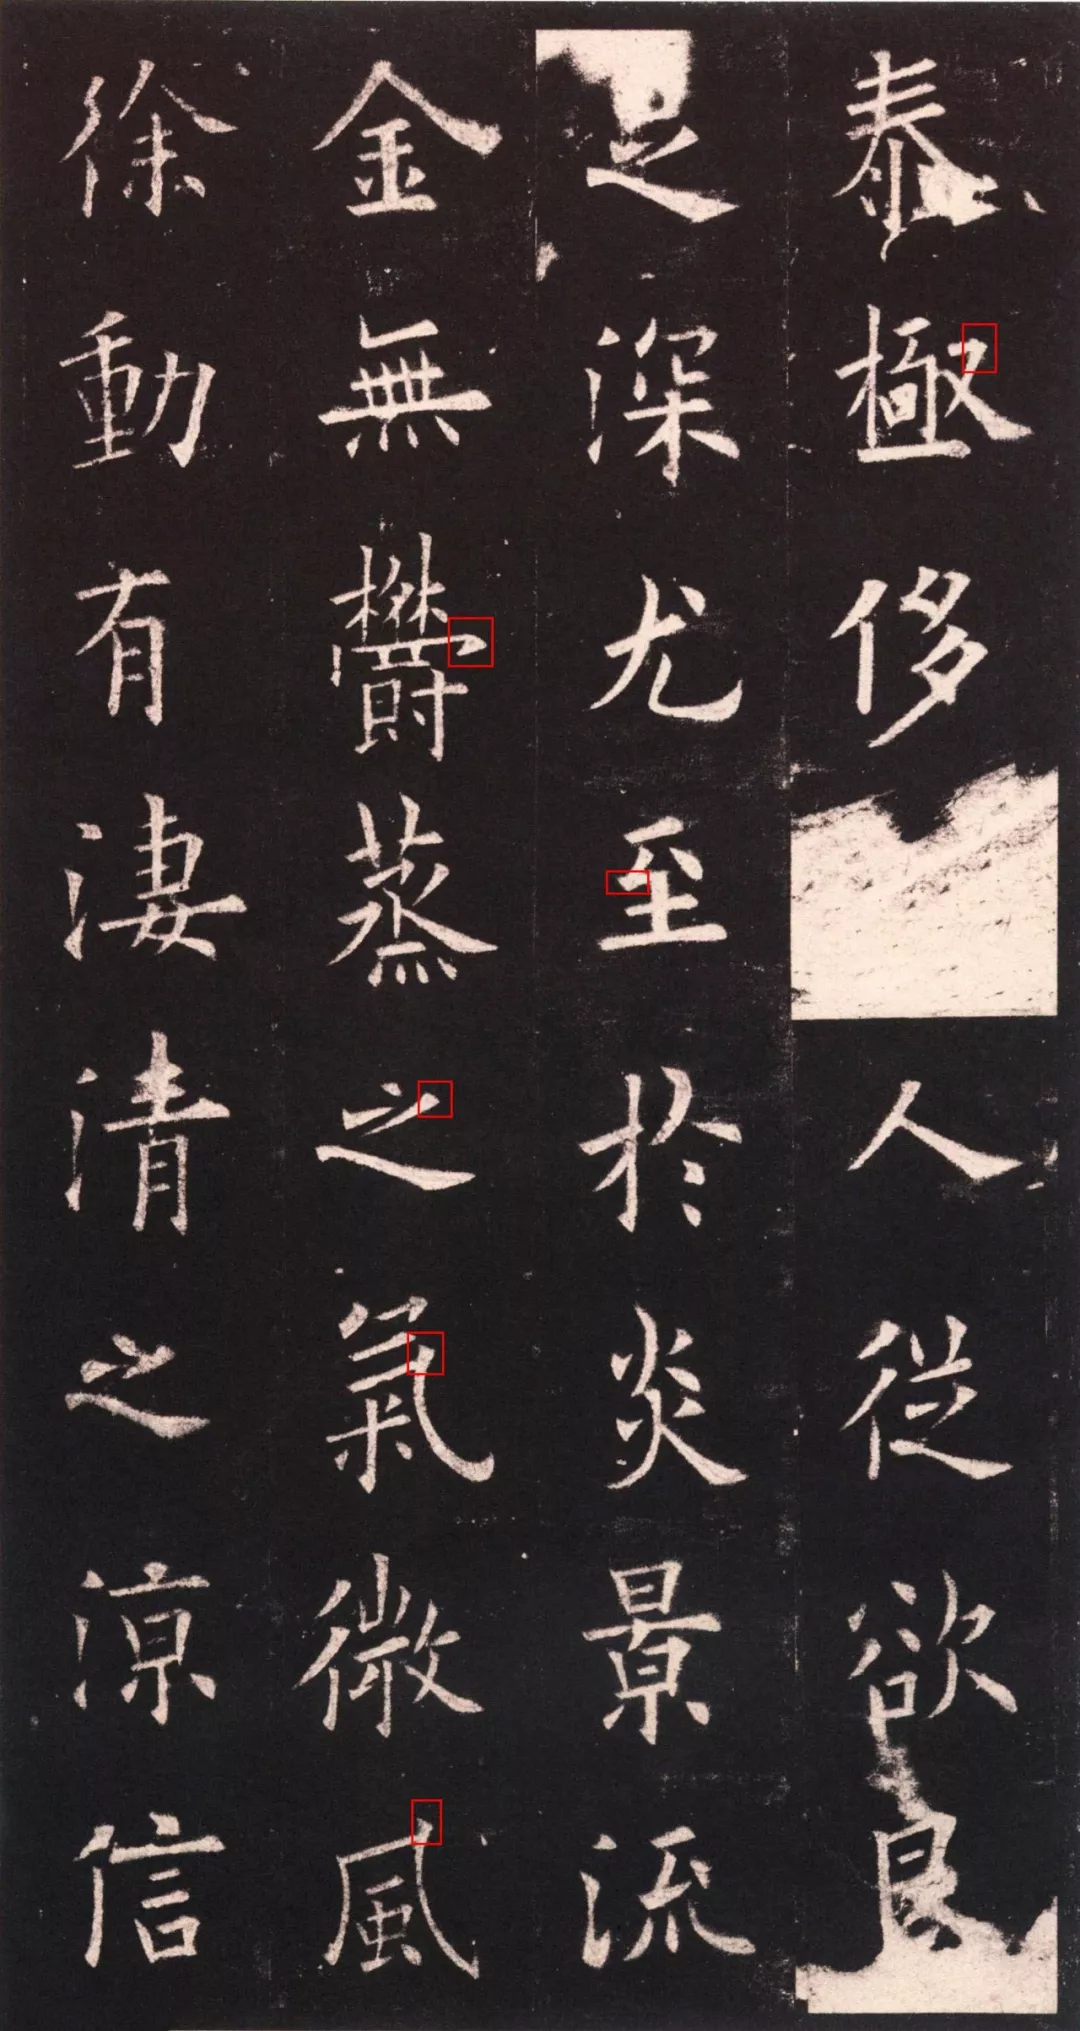 泰極侈人從欲良
足深尤至於炎景流
金無欝蒸之氣微風
徐動有淒清之涼信